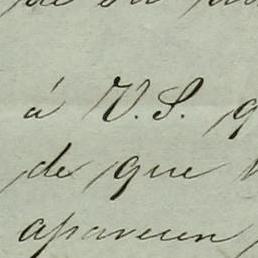 á V.S.
de que
aparecen